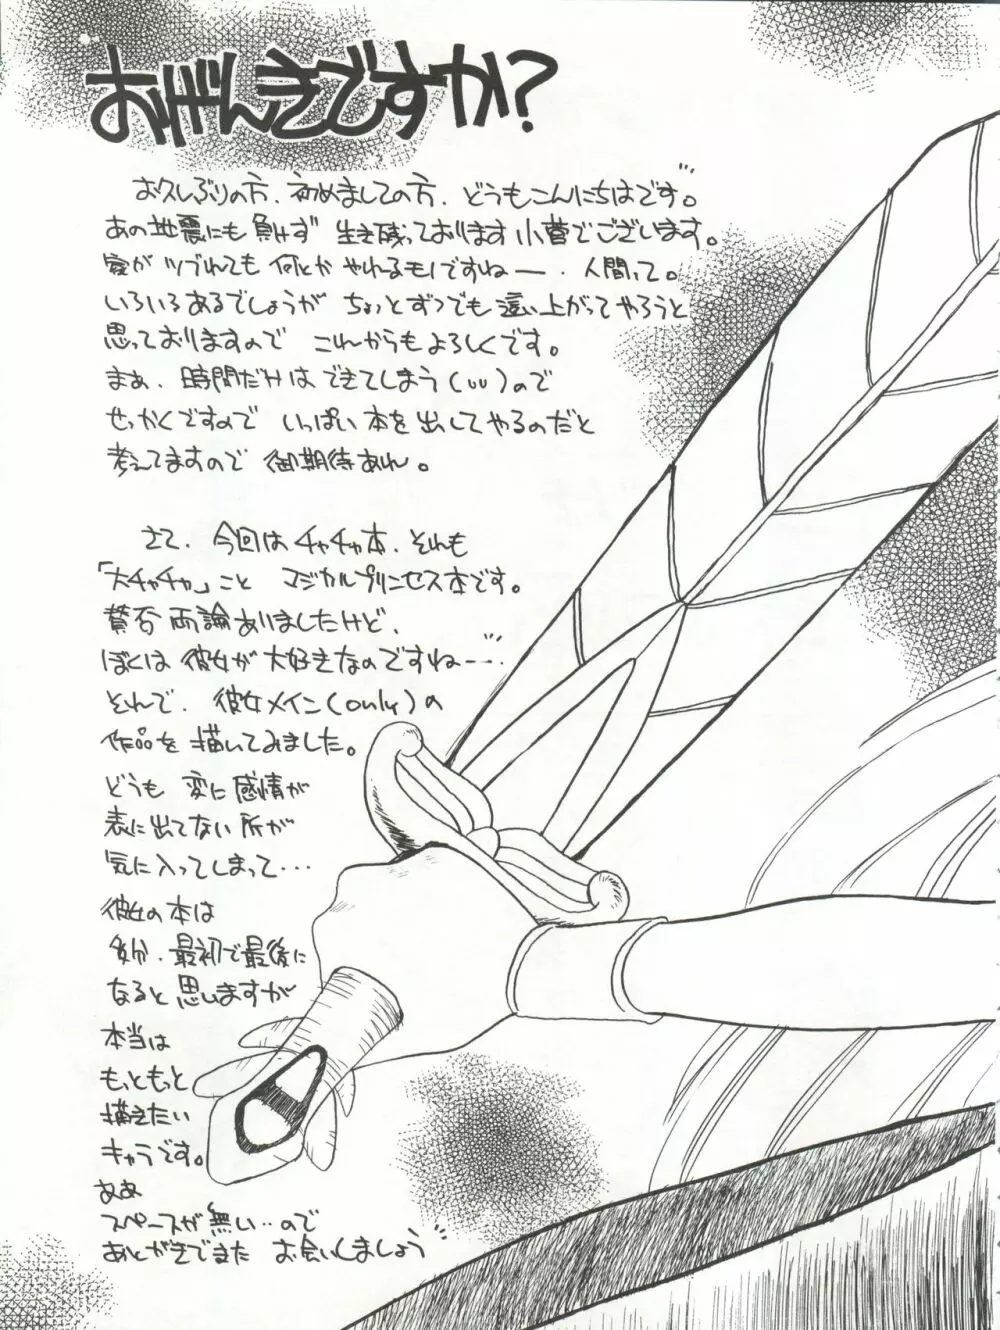 おげんきですか?
お久しぶりの方、初めましての方、どうもこんにちはです。
あの地震にも負けず 生き残っております小菅でございます。
家がツブれても何とか やれるモノですねー、人間って。
いろいろあるでしょうが ちょっとずつでも這い上がってやろうと
思っておりますので これからもよろしくです。
まぁ、時間だけは できてしまう(UU)ので
せっかくですので いっぱい本を出してやるのだと
考えてますので 御期待あれ。
さて、今回は チャチャ本、それも
「大チャチャ」こと マジカルプリンセス本です。
賛否両論ありましたけど、
ぼくは 彼女が 大好きなのですねー…
それで、彼女メイン(only)の
作品を 描いてみました。
どうも 変に 感情が
表に出てない所が
気に入ってしまって…
彼女の本は
多分、最初で最後に
なると 思いますが
本当は
もっともっと
描きたい
キャラです。
ああ
スペースが無い‥ので
あとがきでまた お会いしましょう